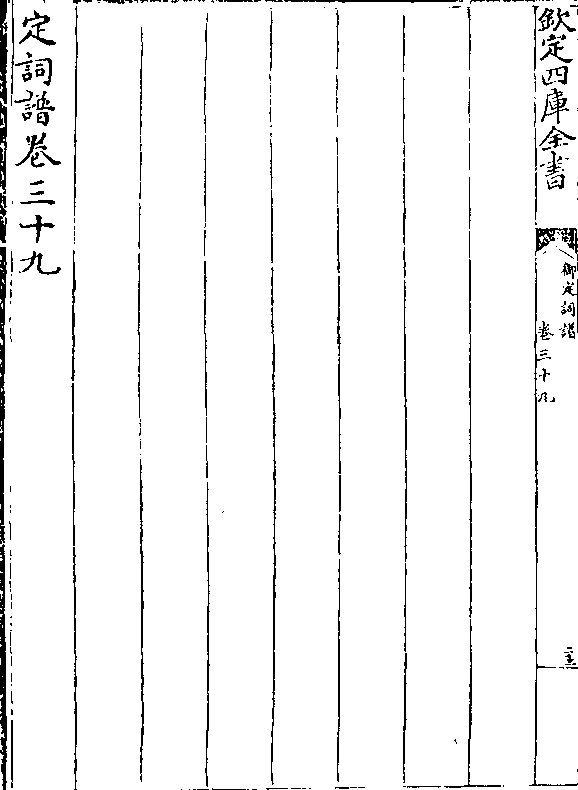 欽定四庫全書
御定詞譜
卷三十九
定詞譜卷三十九